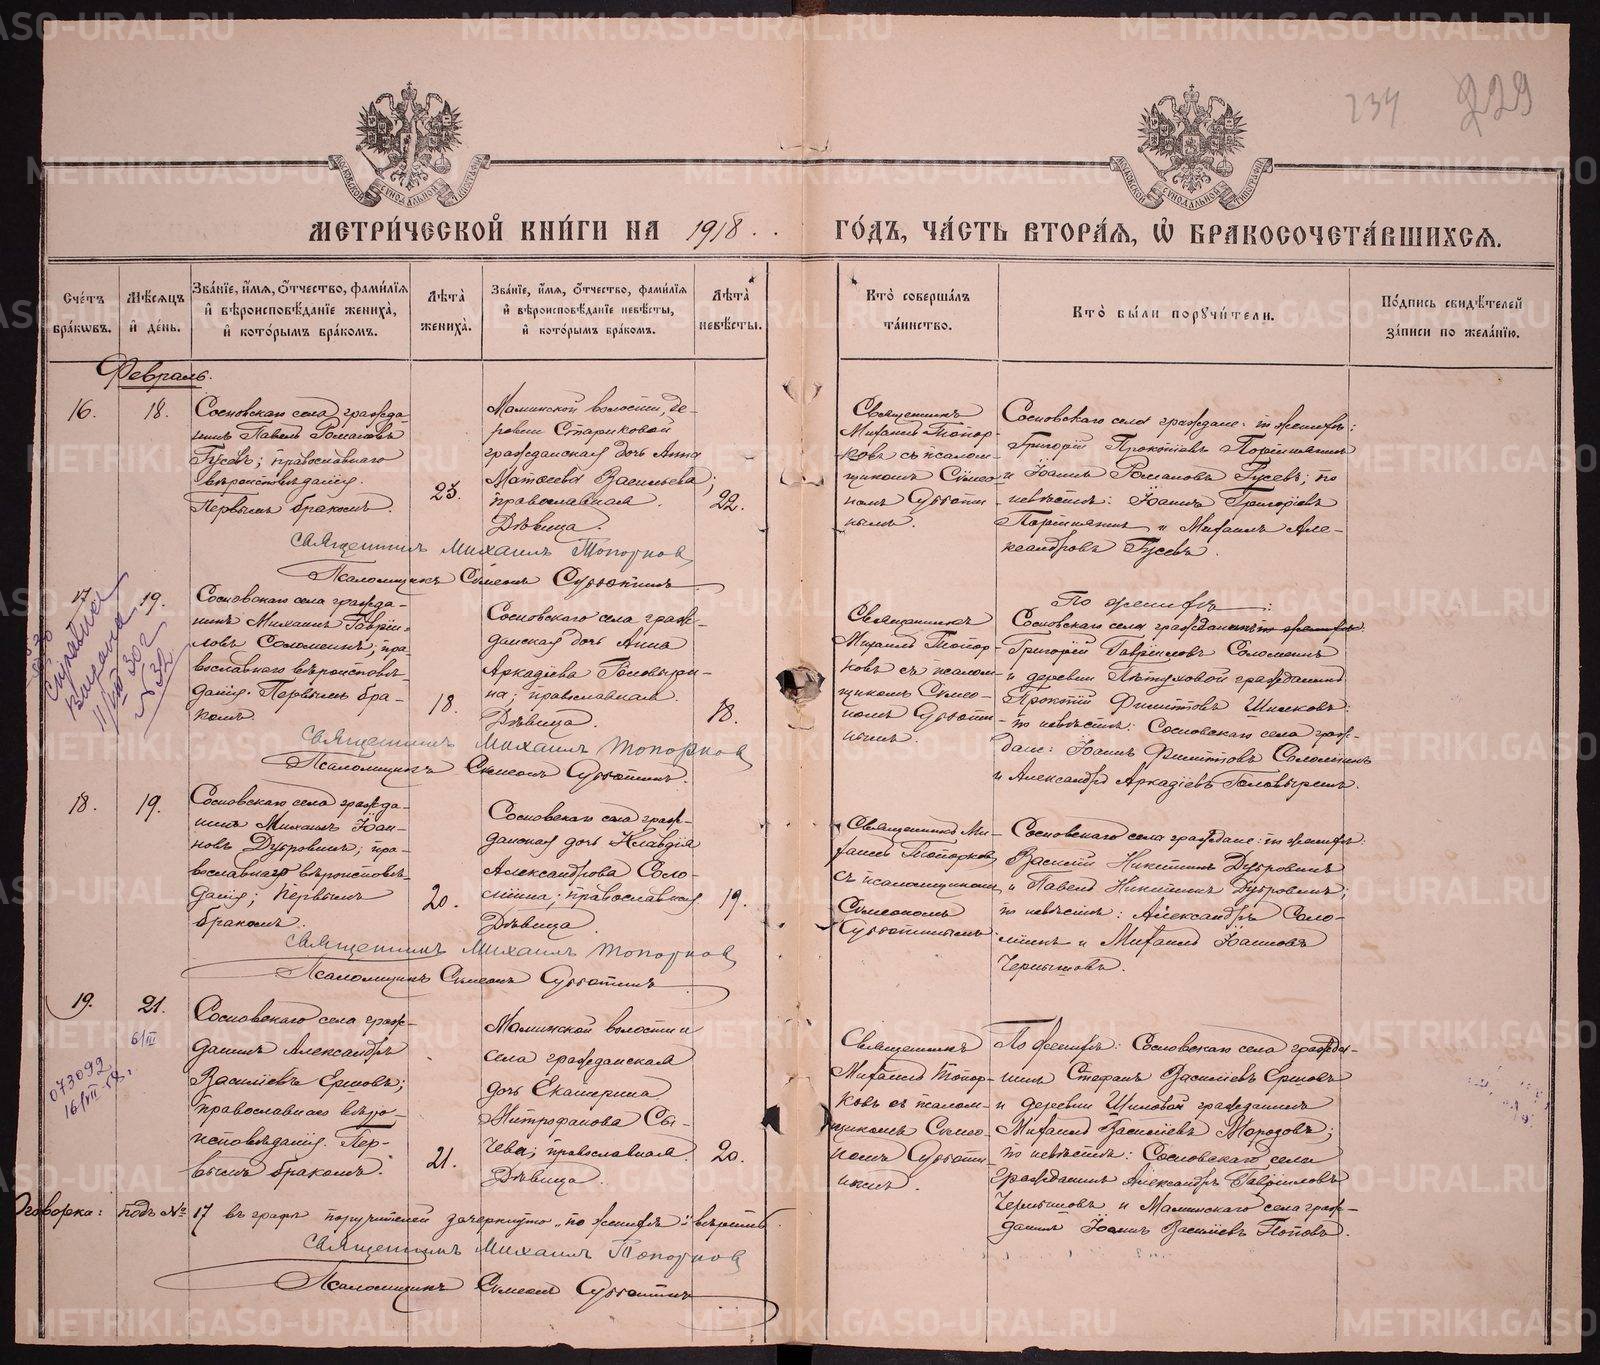 234 229
МЕТРИ́ЧЕСКОЙ КНИ́ГИ НА 1918. ГО́ДЪ, ЧА́СТЬ ВТОРА́Я, Ѡ БРАКОСОЧЕТА́ВШИХСЯ.
Сче́тъ бра́кѡвъ.
Мѣ́сяцъ и҆ де́нь.
Зва́нїе, и҆́мя, ѻ҆́тчество, фами́лїя и҆ вѣроисповѣ́данїе жениха̀, и҆ кото́рымъ бра́комъ.
Лѣта̀ жениха̀.
Зва́нїе, и҆́мя, ѻ҆́тчество, фами́лїя и҆ вѣроисповѣ́данїе невѣ́сты, и҆ кото́рымъ бра́комъ.
Лѣта̀ невѣ́сты.
Кто̀ соверша́лъ та́инство.
Кто̀ бы́ли порꙋчи́тели.
По́дпись свидѣ́телей за́писи по жела́нїю.
Февраль.
16.
18.
Сосновскаго села гражда-
нинъ Павелъ Романовъ
Гусевъ; православнаго
вѣроисповѣданія.
Первымъ бракомъ.
23.
Маминской волости, де-
ревни Стариковой
гражданская дочь Анна
Матѳеева Васильева;
православная.
Дѣвица.
22.
Священникъ
Михаилъ Топор-
ковъ съ псалом-
щикомъ Сѵмео-
номъ Субботи-
нымъ.
Сосновскаго села граждане: по женихѣ:
Григорій Прокопіевъ
и Іоаннъ Романовъ Гусевъ; по
невѣстѣ: Іоаннъ Григоріевъ
и Михаилъ Але-
ксандровъ Гусевъ.
Священникъ Михаилъ Топорковъ
Псаломщикъ Сѵмеонъ Субботинъ
17.
19.
Сосновскаго села гражда-
нинъ Михаилъ Гаврии-
ловъ Соломеинъ; пра-
вославнаго вѣроисповѣ-
данія. Первымъ бра-
комъ.
18.
Сосновскаго села граж-
данская дочь Анна
Аркадіева Головыри-
на; православная.
Дѣвица.
18.
Священникъ
Михаилъ Топор-
ковъ съ псалом-
щикомъ Сѵмео-
номъ Субботи-
нымъ.
По женихѣ:
Сосновскаго села гражданинъ по женихѣ:
Григорій Гаврииловъ Соломеинъ
и деревни Пѣтуховой гражданинъ
Прокопій Филипповъ Шиловъ;
по невѣстѣ: Сосновскаго села граж-
дане: Іоаннъ Филипповъ Соломеинъ
и Александръ Аркадіевъ Головыринъ.
Священникъ Михаилъ Топорковъ
Псаломщикъ Сѵмеонъ Субботинъ.
18.
19.
Сосновскаго села гражда-
нинъ Михаилъ Іоан-
новъ Дубровинъ; пра-
вославнаго вѣроисповѣ-
данія; первымъ
бракомъ.
20.
Сосновскаго села граж-
данская дочь Клавдія
Александрова Соло-
мѣина; православная
Дѣвица.
19.
Священникъ Ми-
хаилъ Топорковъ
съ псаломщикомъ
Сѵмеономъ
Субботинымъ
Сосновскаго села граждане: по женихѣ:
Василій Никитинъ Дубровинъ
и Павелъ Никитинъ Дубровинъ;
по невѣстѣ: Александръ Соло-
мѣинъ и Михаилъ Іоанновъ
Чернышовъ.
Священникъ Михаилъ Топорковъ
Псаломщикъ Сѵмеонъ Субботинъ
19.
21.
6/III
073092
16/VII
Сосновскаго села граж-
данинъ Александръ
Василіевъ Ершовъ;
православнаго вѣро-
исповѣданія. Пер-
вымъ бракомъ.
21.
Маминской волости и
села гражданская
дочь Екатерина
Митрофанова Сы-
чева; православная.
Дѣвица.
20.
Священникъ
Михаилъ Топор-
ковъ съ псалом-
щикомъ Сѵмео-
номъ Субботи-
нымъ.
По женихѣ: Сосновскаго села гражда-
нинъ Стефанъ Василіевъ Ершовъ
и деревни Шиловой гражданинъ
Михаилъ Василіевъ Морозовъ;
по невѣстѣ: Сосновскаго села
гражданинъ Александръ Гаврииловъ
Чернышовъ и Маминскаго села граж-
данинъ Іоаннъ Василіевъ Поповъ.
Оговорка: подъ № 17 въ графѣ поручителей зачеркнуто „по женихѣ" вѣрить.
Священникъ Михаилъ Топорковъ
Псаломщикъ Сѵмеонъ Субботинъ
METRIKI.GASO-URAL.RU